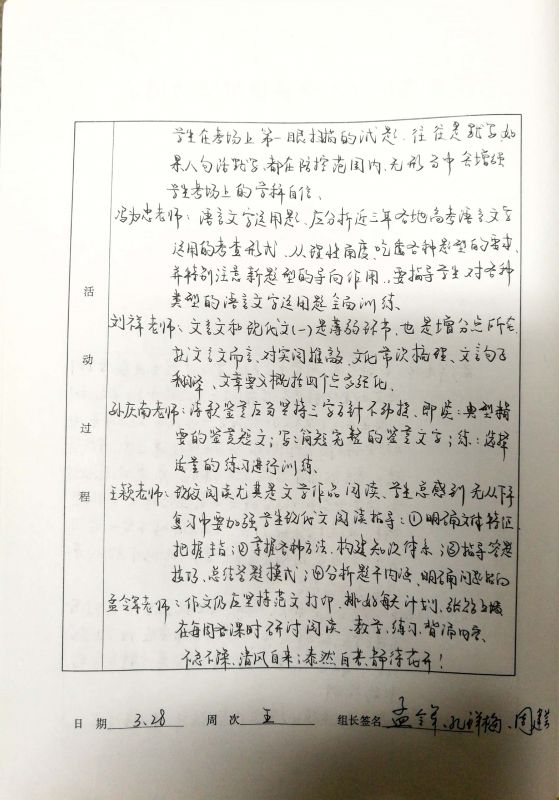 学生在考场上第一眼扫描的试题,往往是默写,如
果人句话默写,都在防控范围内,无形当中会增强
学生考场上的学科自信。
冯为忠老师:语言文字运用题,应分析近三年各地高考语言文字
运用的考查形式,从理性角度,吃透各种题型的要求,
并特别注意新题型的导向作用,要指导学生对各种
类型的语言文字运用题全面训练。
刘祥老师:文言文和现代文(一)是薄弱环节,也是增分点所在,
就文言文而言,对实词推敲、文化常识梳理、文言句子
翻译、文章要义概括四个点字强化。
孙庆南老师:诗歌鉴赏应当坚持三字方针不动摇,即读:典型精
要的鉴赏短文;写:简短完整的鉴赏文字;练:选择
质量的练习进行训练。
王颖老师:现代文阅读尤其是文学作品阅读,学生总感到无从下手
复习中要加强学生现代文阅读指导:①明确文体特征,
把握主旨;②掌握各种方法,构建知识体系;③指导答题
技巧,总结答题模式;④分析题干内涵,明确问题指向
孟令军老师:作文仍应坚持范文打印,排好每天计划,张
在每周 课时研讨阅读、教学、练习、背诵内容。
不急不躁,清风自来;泰然自若,静待花开!
活动过程
日 期 3.28 周 次 五 组长签名 孟令军、孔祥梅、周建